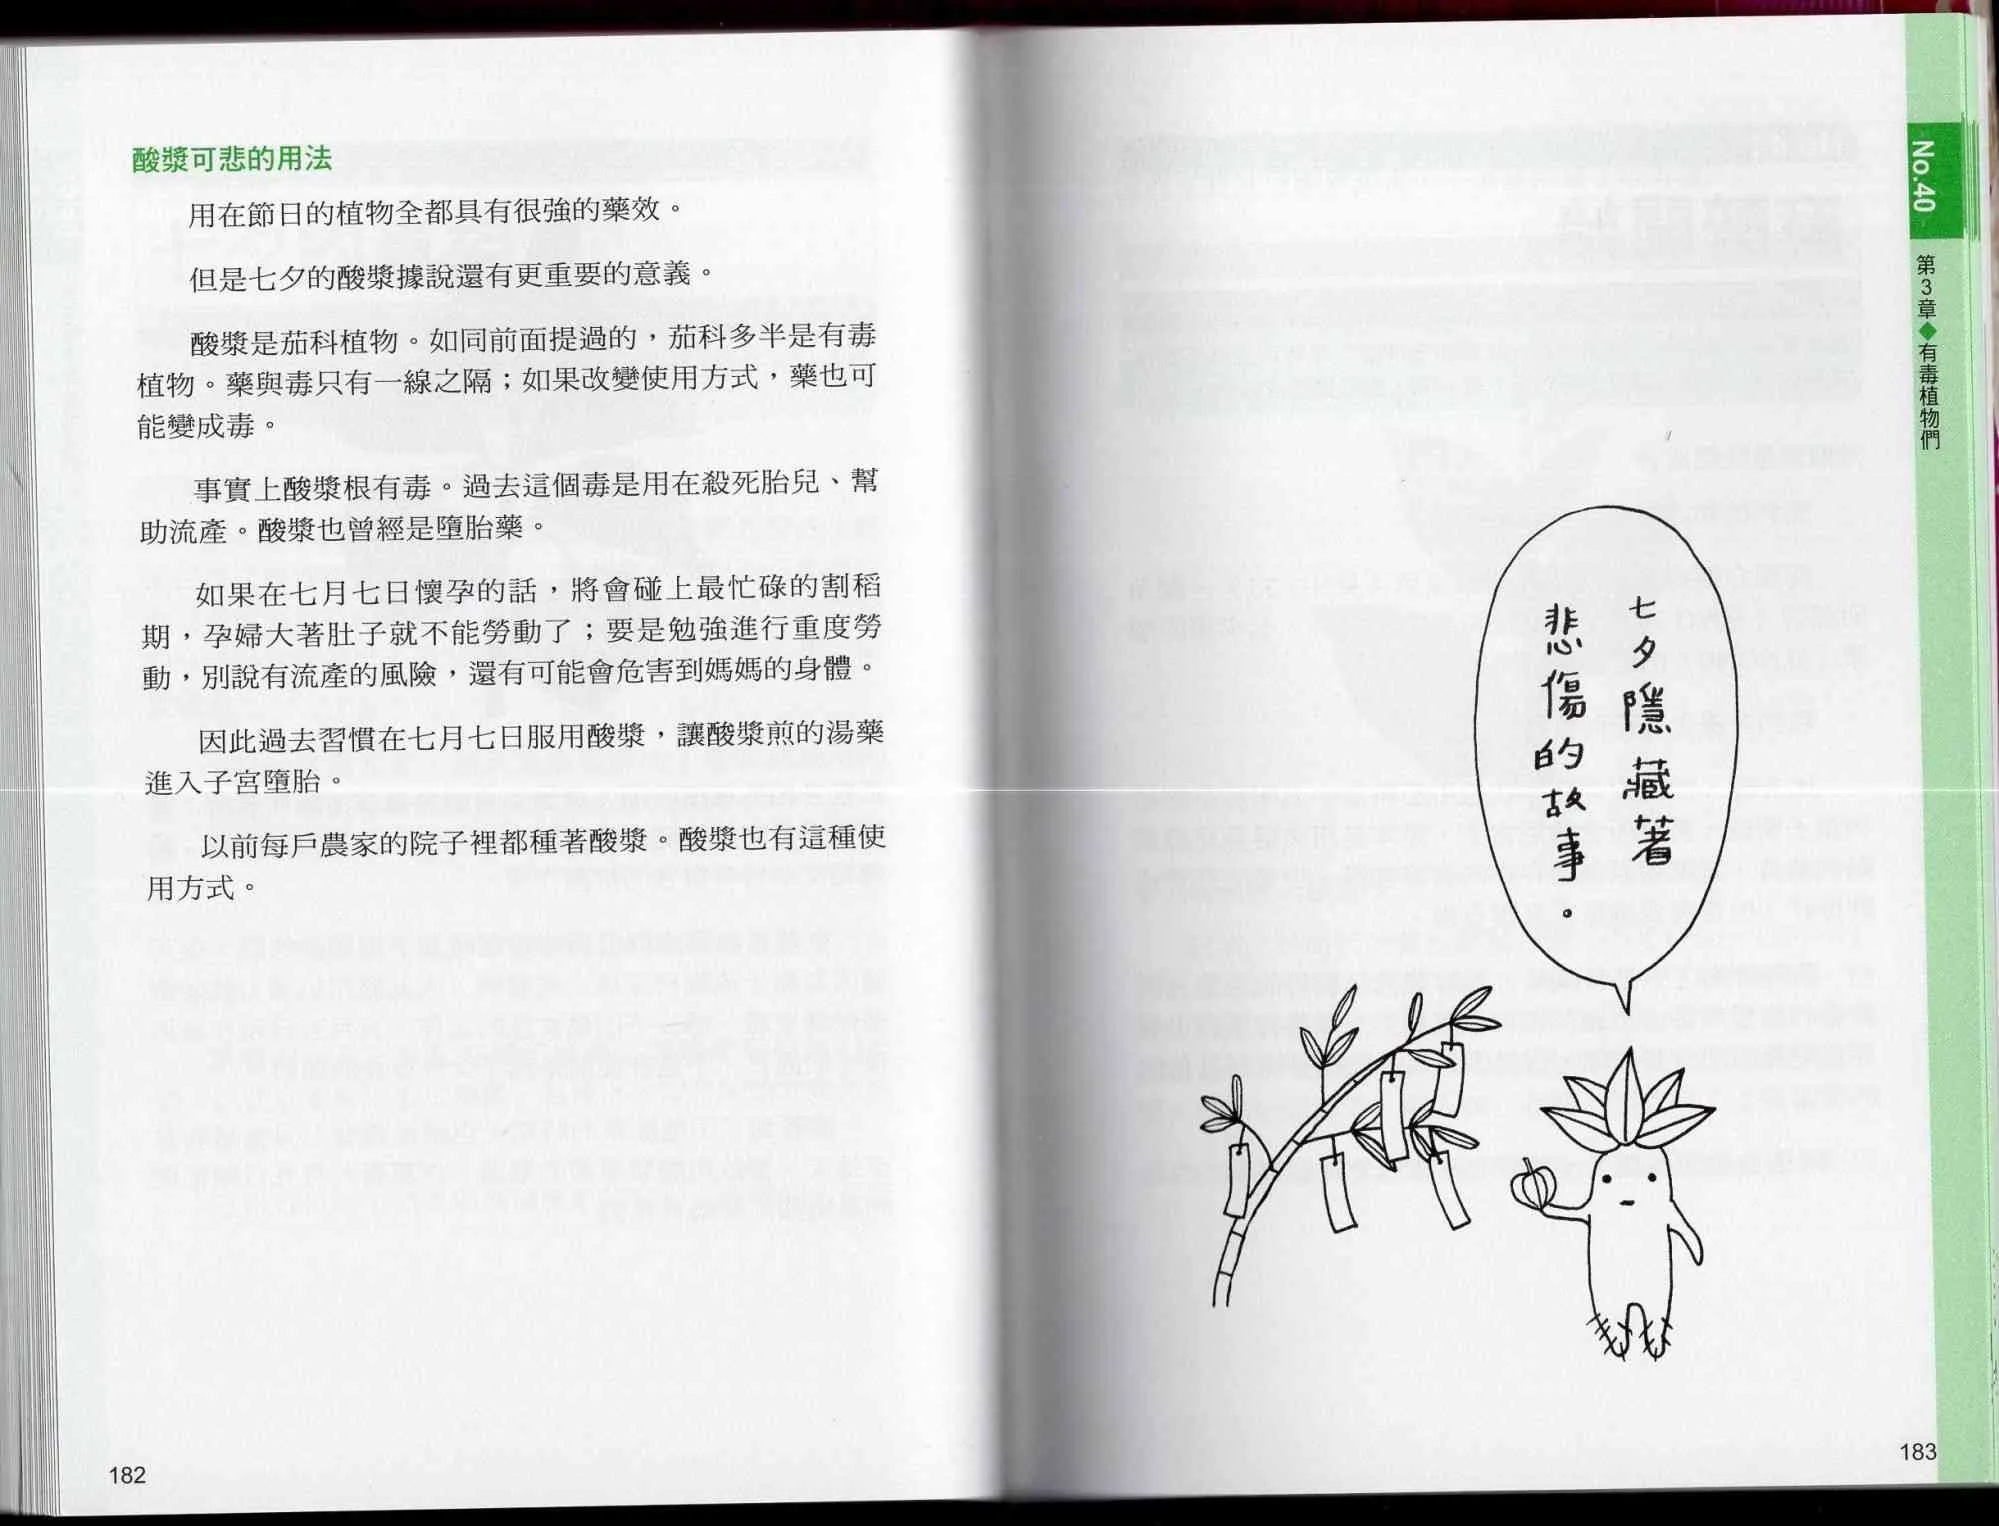 酸漿可悲的用法
用在節日的植物全都具有很強的藥效。
但是七夕的酸漿據說還有更重要的意義。
酸漿是茄科植物。如同前面提過的，茄科多半是有毒
植物。藥與毒只有一線之隔；如果改變使用方式，藥也可
能變成毒。
事實上酸漿根有毒。過去這個毒是用在殺死胎兒、幫
助流產。酸漿也曾經是墮胎藥。
如果在七月七日懷孕的話，將會碰上最忙碌的割稻
期，孕婦大著肚子就不能勞動了；要是勉強進行重度勞
動，別說有流產的風險，還有可能會危害到媽媽的身體。
因此過去習慣在七月七日服用酸漿，讓酸漿煎的湯藥
進入子宮墮胎。
以前每戶農家的院子裡都種著酸漿。酸漿也有這種使
用方式。
182
No.40
第3章◆有毒植物們
七夕隱藏著
悲傷的故事。
183